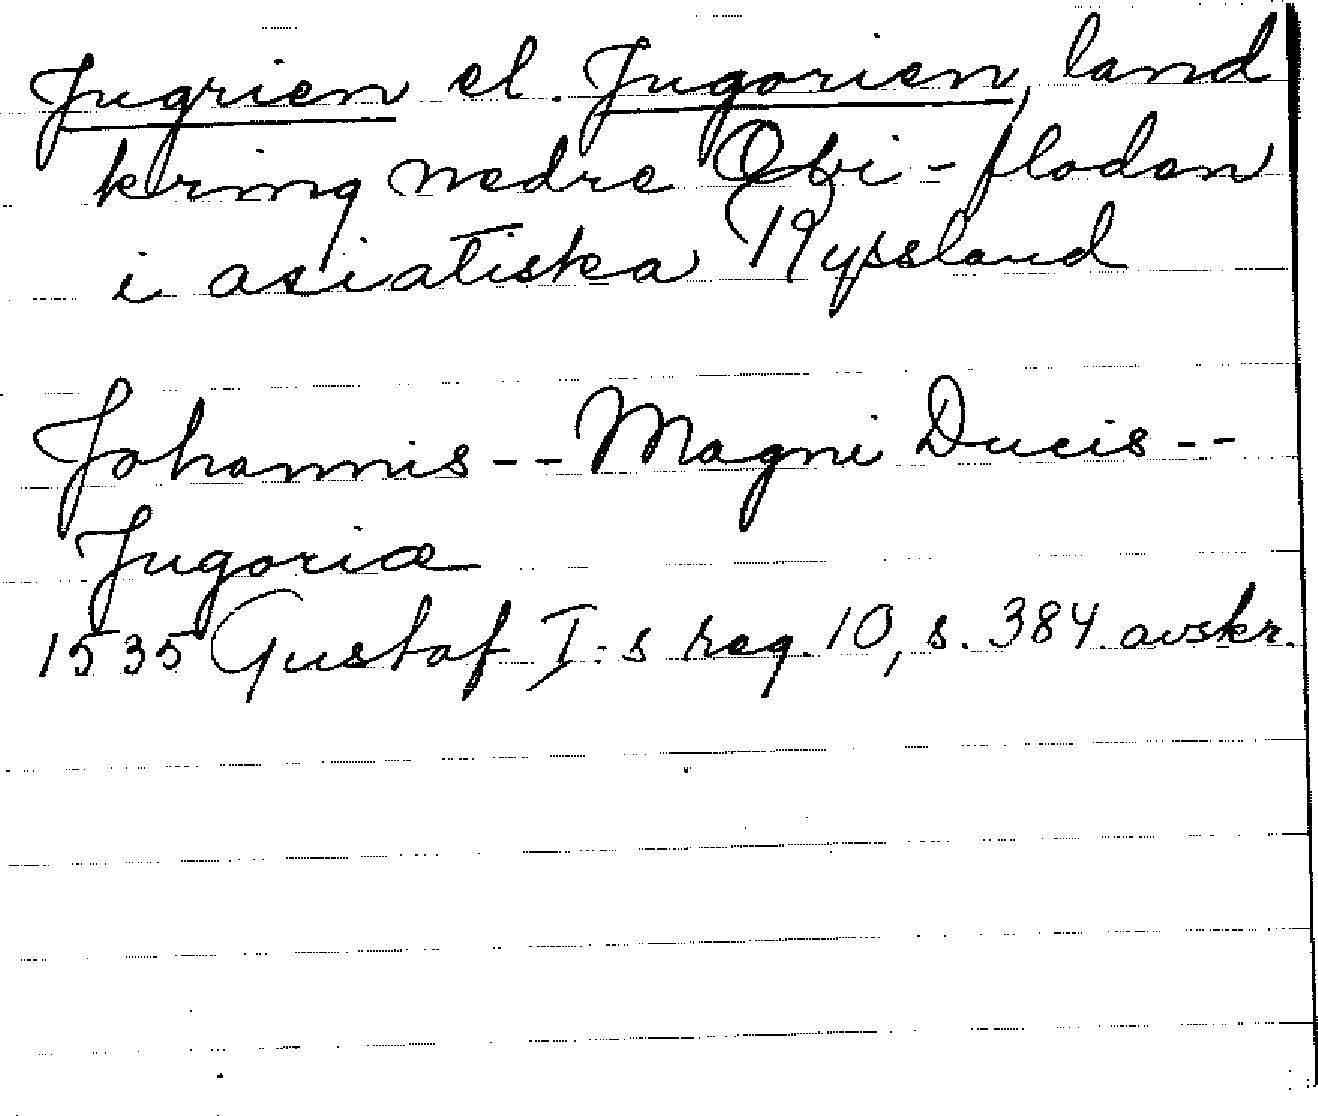 Jugrien el. Jugorien, land
kring nedre Obi-floden
i asiatiska Ryssland
Johannis -- Magni Ducis --
Jugoriæ
1535 Gustaf I:s reg. 10, s. 384. avskr.